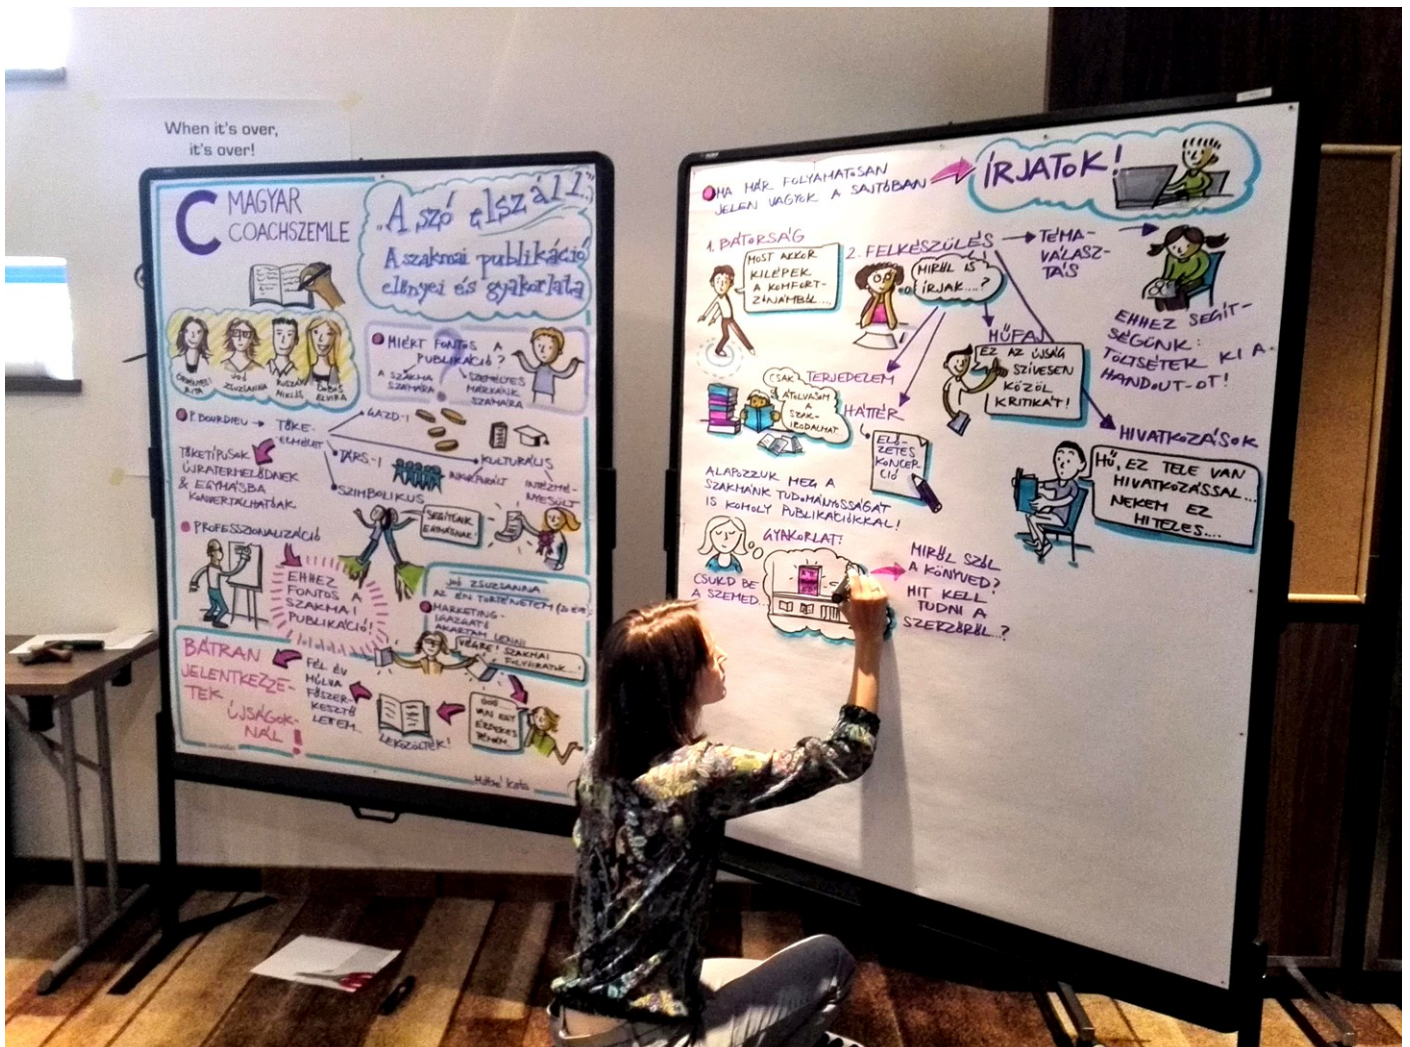 When it's over,
it's over!
C MAGYAR
COACHSZEMLE
„A szó elszáll..."
A szakmai publikáció
előnyei és gyakorlata
RITA
JOÓ
ZSUZSANNA
RUSZÁK
MIKLÓS
DOBOS
ELVIRA
MIÉRT FONTOS A
PUBLIKÁCIÓ?
A SZAKMA
SZÁMÁRA
SZEMÉLYES
MÁRKÁNK
SZÁMÁRA
P. BOURDIEU → TŐKE-
ELMÉLET
GAZD.-I
TÁRS.-I
KULTURÁLIS
INTÉZMÉ-
NYESÜLT
SZIMBOLIKUS
TŐKETÍPUSOK
ÚJRATERMELŐDNEK
& EGYMÁSBA
KONVERTÁLHATÓAK
SEGÍTSÜNK
EGYMÁSNAK!
PROFESSZIONALIZÁCIÓ
EHHEZ
FONTOS A
SZAKMAI
PUBLIKÁCIÓ!
JOÓ ZSUZSANNA
AZ ÉN TÖRTÉNETEM
MARKETING-
IGAZGATÓ
AKARTAM LENNI
VÉGRE! SZAKMAI
FOLYÓIRATOK...!
VAN EGY
ÉRDEKES
TÉMÁM...
LEKÖZÖLTÉK!
FÉL ÉV
MÚLVA
FŐSZER-
KESZTŐ
LETTEM...
BÁTRAN
JELENTKEZZE-
TEK
ÚJSÁGOK-
NÁL!
Máthé Kata
MA MÁR FOLYAMATOSAN
JELEN VAGYOK A SAJTÓBAN
ÍRJATOK!
1. BÁTORSÁG
MOST AKKOR
KILÉPEK
A KOMFORT-
ZÓNÁMBÓL...
2. FELKÉSZÜLÉS → TÉMA-
VÁLASZ-
TÁS
MIRŐL IS
ÍRJAK....?
EHHEZ SEGÍT-
SÉGÜNK:
TÖLTSÉTEK KI A
HANDOUT-OT!
MŰFAJ
EZ AZ ÚJSÁG
SZÍVESEN
KÖZÖL
KRITIKÁT!
TERJEDELEM
CSAK
ÁTOLVASOM
A
SZAK-
IRODALMAT
HÁTTÉR
ELŐ-
ZETES
KONCEP-
CIÓ
HIVATKOZÁSOK
HŰ, EZ TELE VAN
HIVATKOZÁSSAL...
NEKEM EZ
HITELES....
ALAPOZZUK MEG A
SZAKMÁNK TUDOMÁNYOSSÁGÁT
IS KOMOLY PUBLIKÁCIÓKKAL!
GYAKORLAT:
CSUKD BE
A SZEMED...
MIRŐL SZÓL
A KÖNYVED?
MIT KELL
TUDNI A
SZERZŐRŐL...?